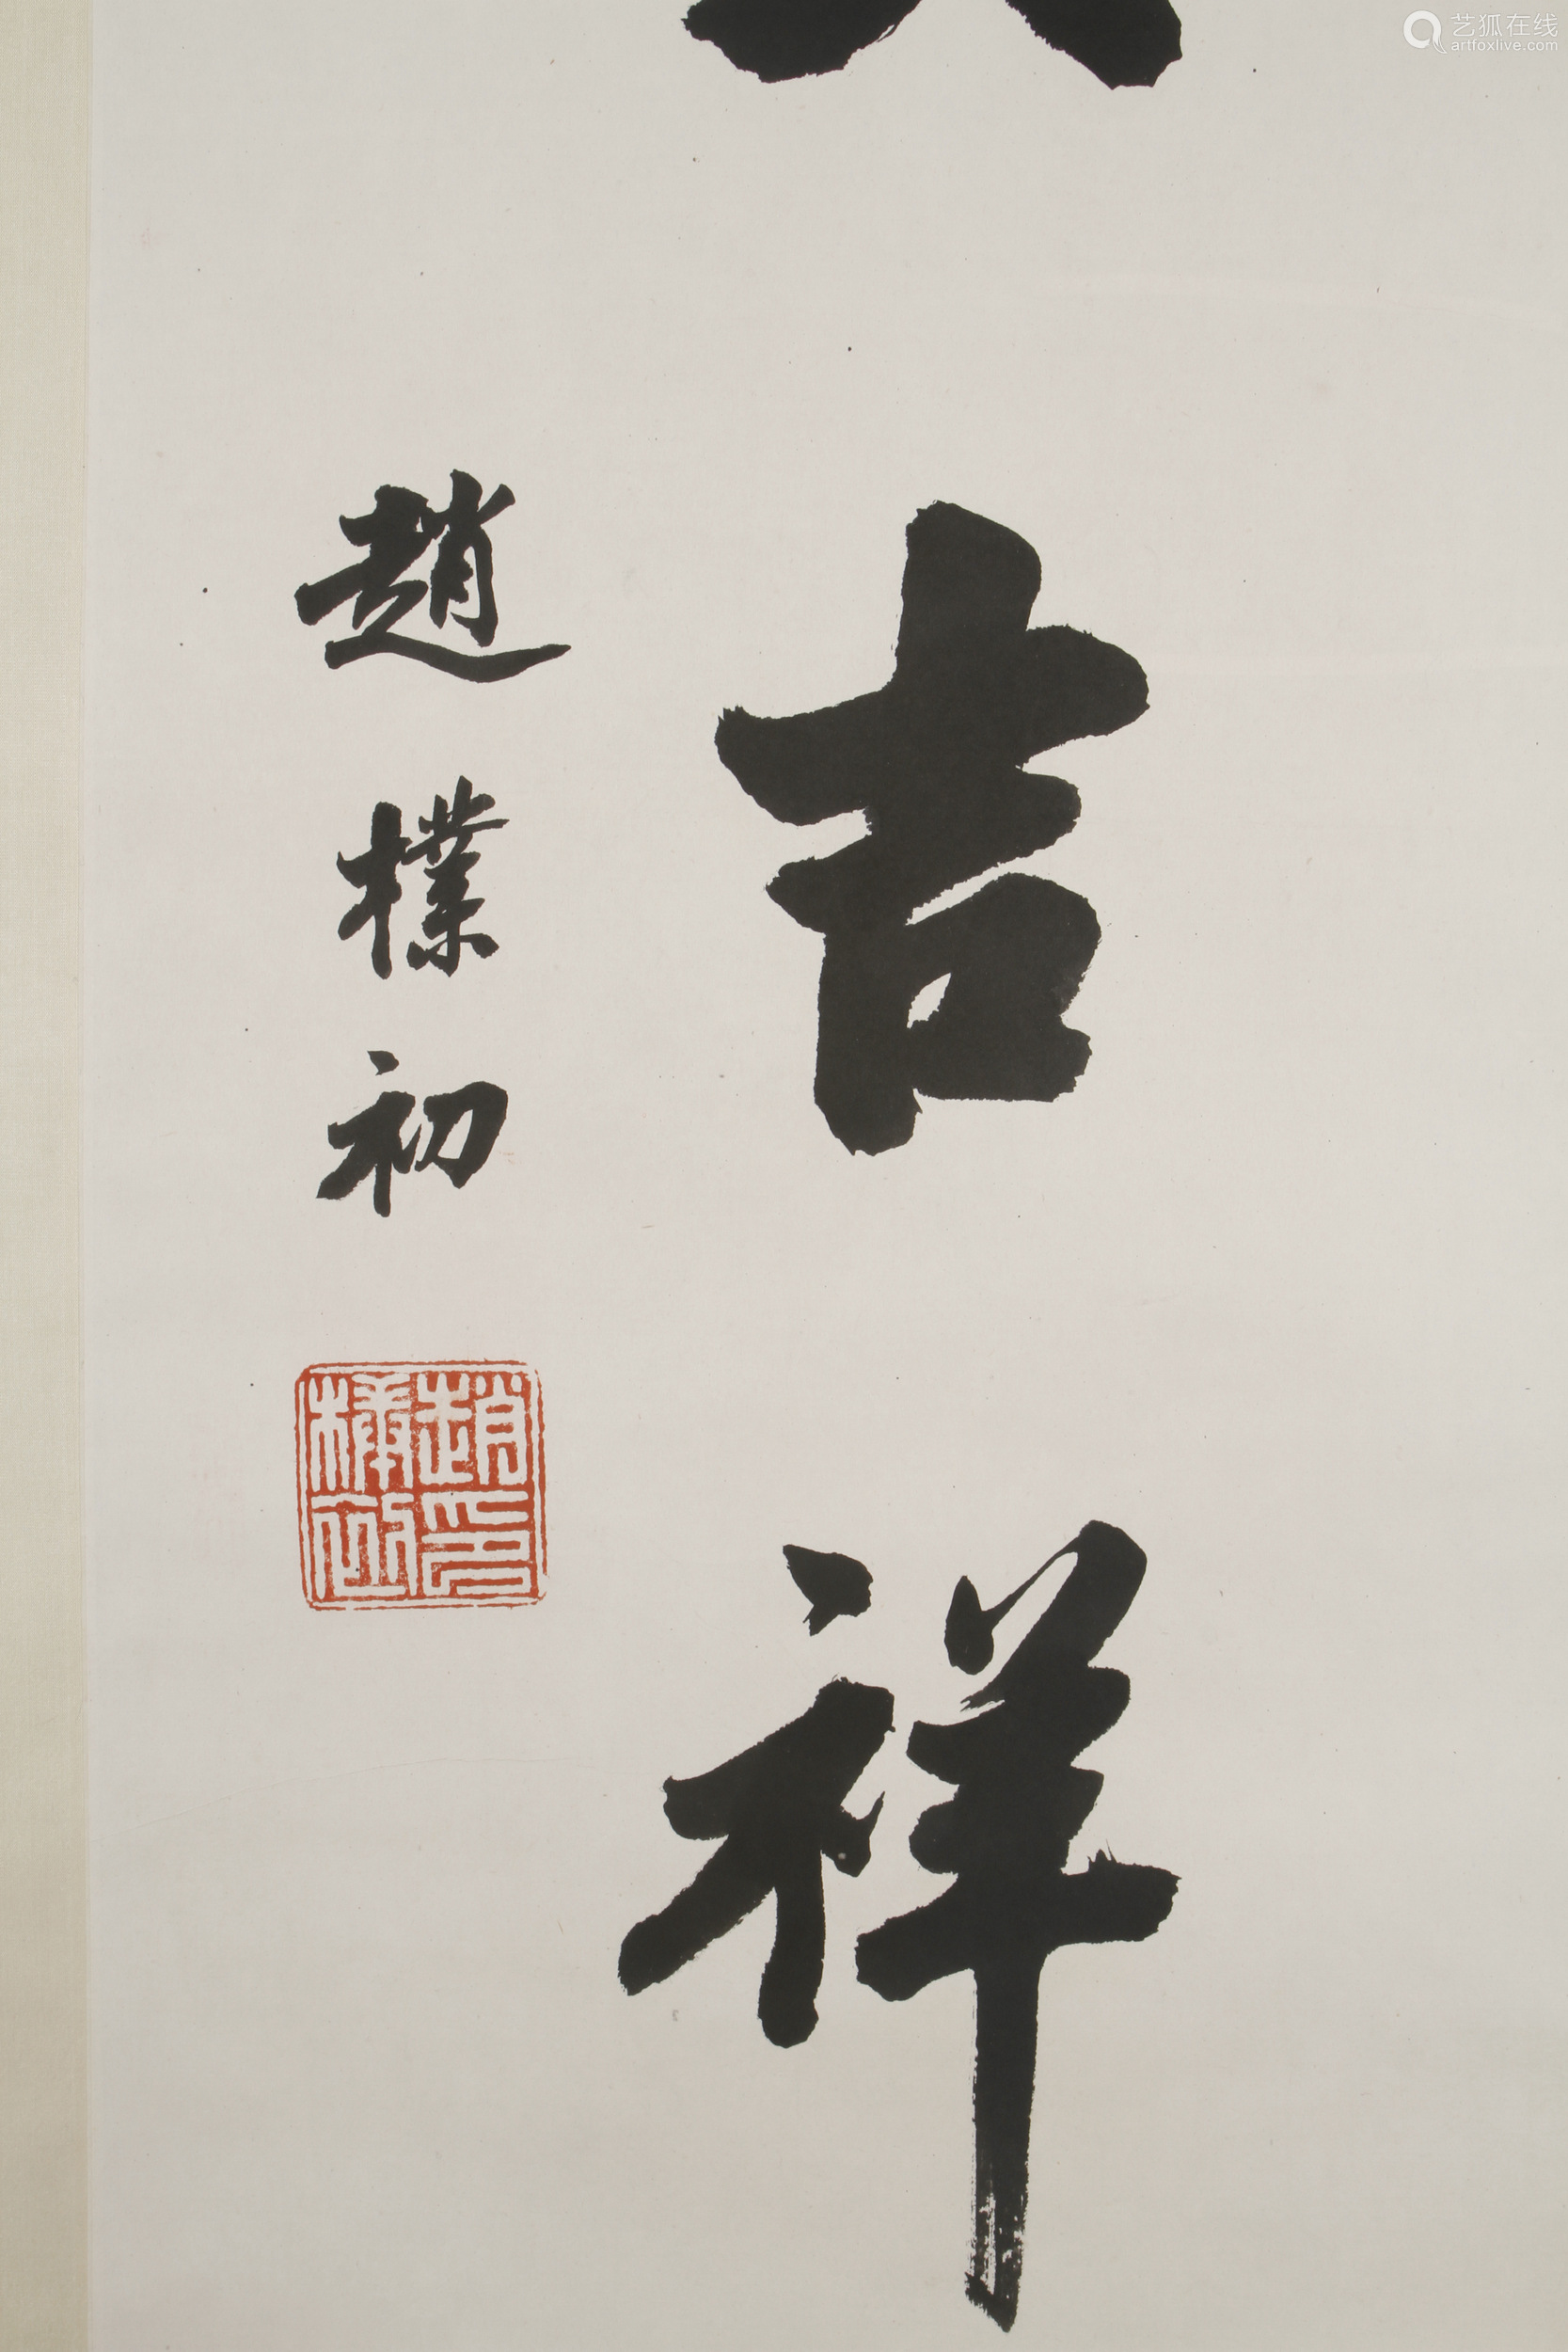 吉祥
趙樸初
趙樸初印
艺狐在线
artfoxlive.com